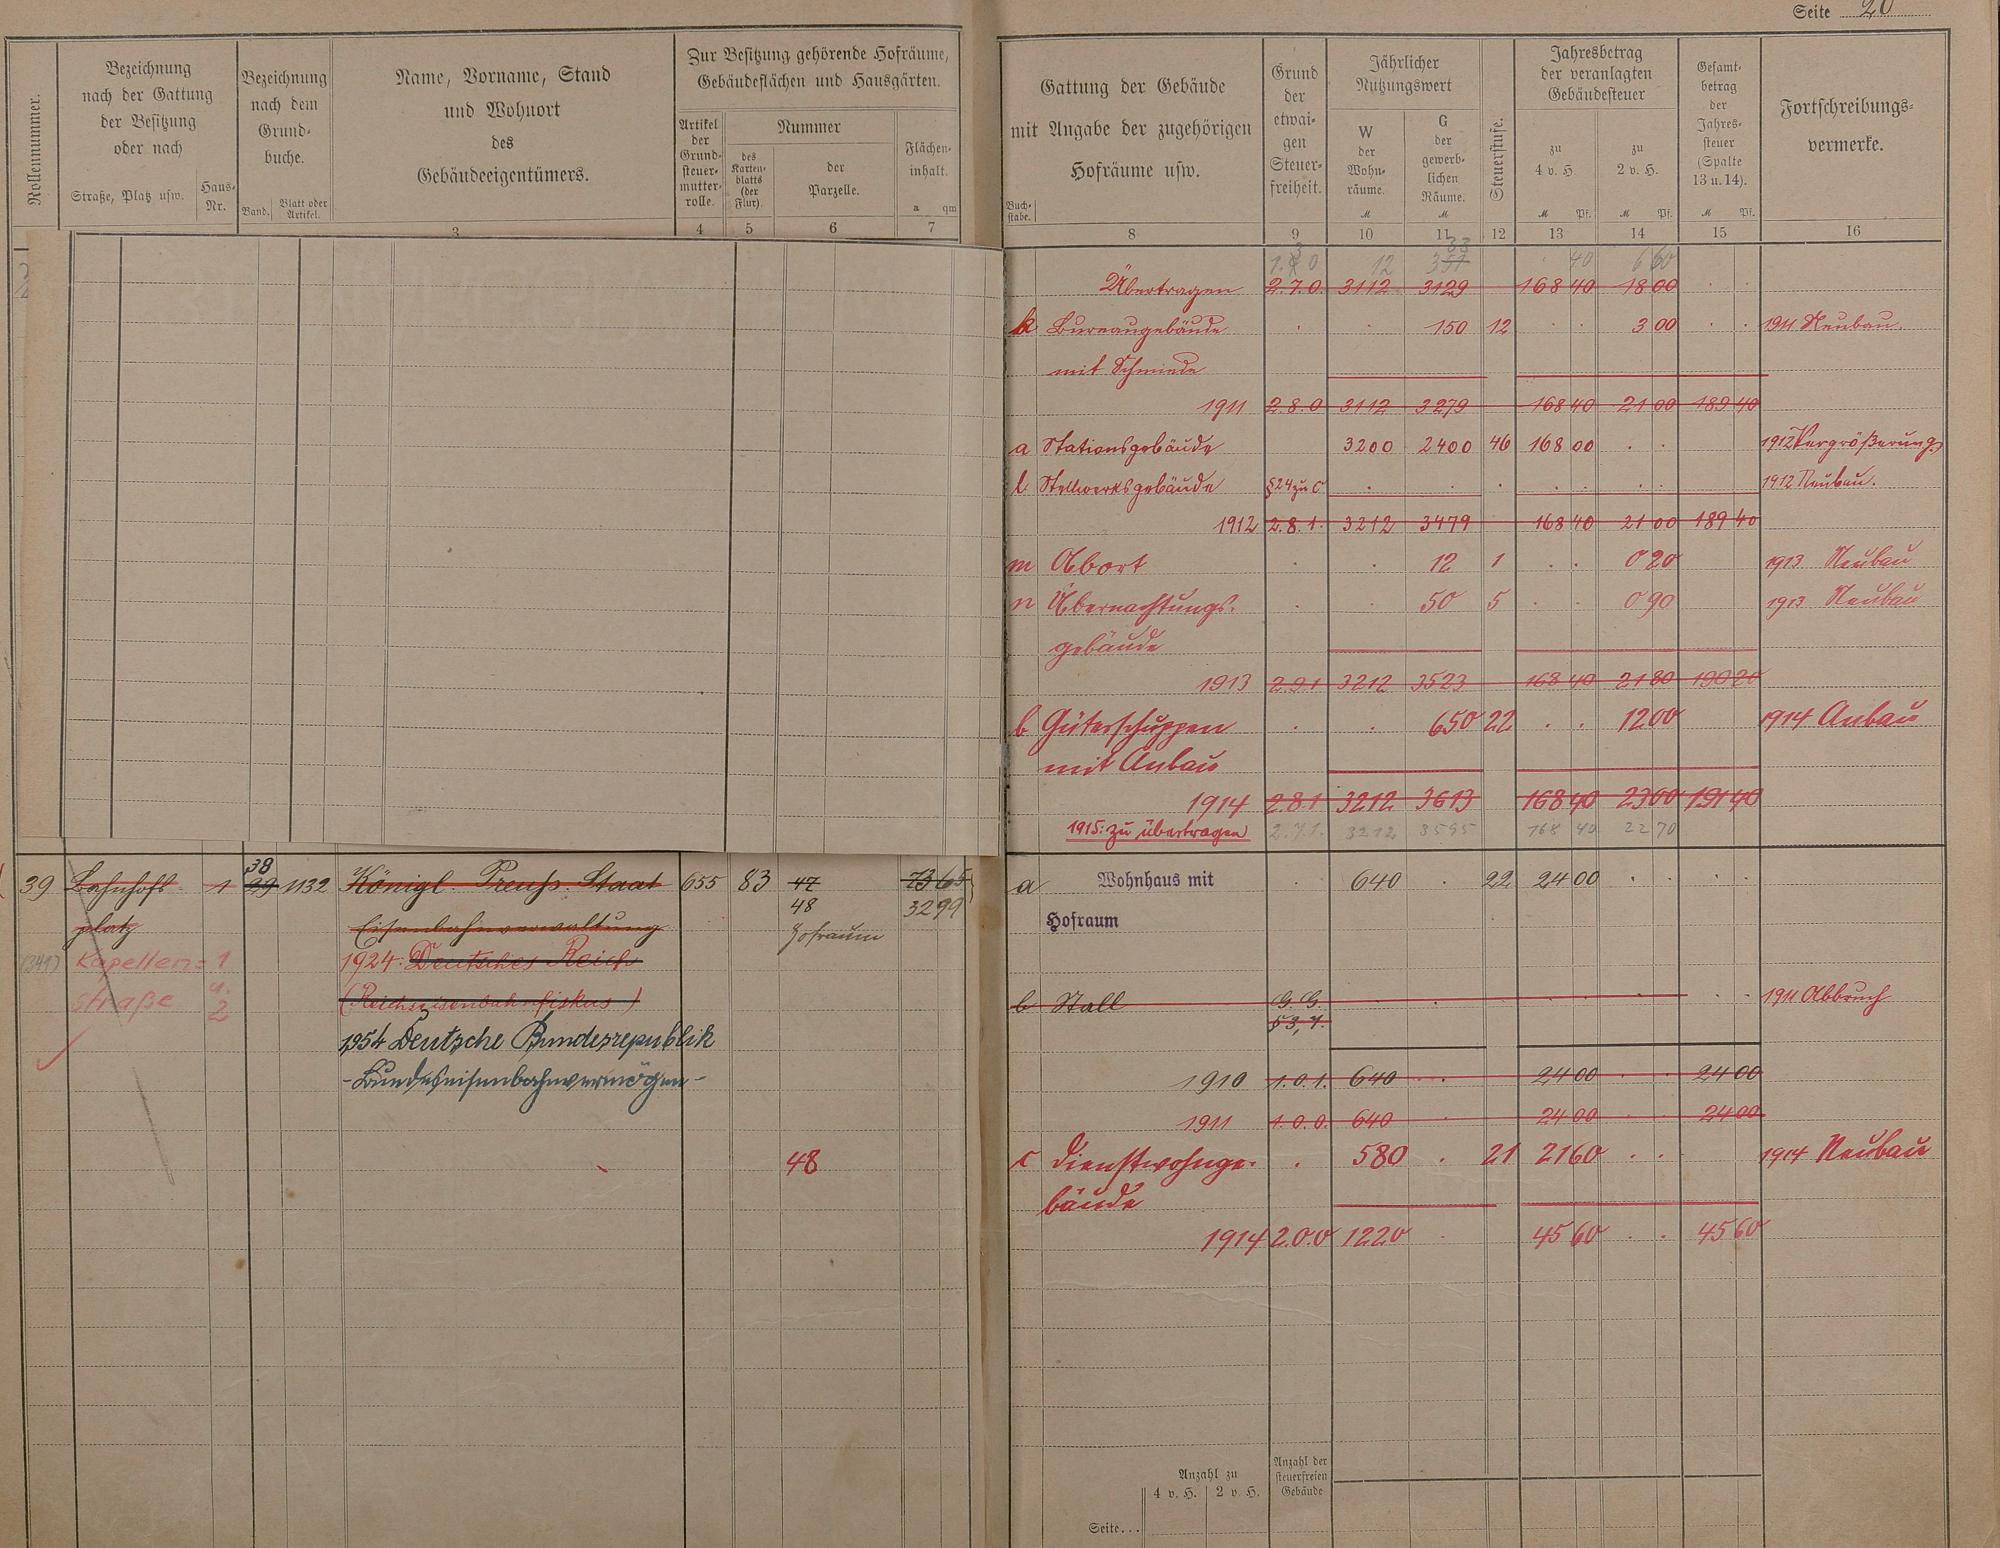 Seite 20
Rollennummer.
Bezeichnung
nach der Gattung
der Besitzung
oder nach
Straße, Platz usw.
Haus-
Nr.
Bezeichnung
nach dem
Grund-
buche.
Band.
Blatt oder
Artikel.
Name, Vorname, Stand
und Wohnort
des
Gebäudeeigentümers.
Zur Besitzung gehörende Hofräume,
Gebäudeflächen und Hausgärten.
Artikel
der
Grund-
steuer-
mutter-
rolle.
Nummer
des
Karten-
blatts
(der
Flur).
der
Parzelle.
Flächen-
inhalt.
a qm
3 4 5 6 7
Gattung der Gebäude
mit Angabe der zugehörigen
Hofräume usw.
Buch-
stabe.
Grund
der
etwai-
gen
Steuer-
freiheit.
Jährlicher
Nutzungswert
W
der
Wohn-
räume.
M
G
der
gewerb-
lichen
Räume.
M
Steuerstufe.
Jahresbetrag
der veranlagten
Gebäudesteuer
zu
4 v. H.
M Pf.
zu
2 v. H.
M Pf.
Gesamt-
betrag
der
Jahres-
steuer
(Spalte
13 u. 14).
M Pf.
Fortschreibungs-
vermerke.
8 9 10 11 12 13 14 15 16
Übertragen 2.7.0. 3112 3129 168 40 18 00
k Bureaugebäude 150 12 3 00 1911 Neubau.
mit Schmiede
1911 2.8.0 3112 3279 168 40 21 00 189 40
a Stationsgebäude 3200 2400 46 168 00 1912 Vergrößerung
l Stellwerksgebäude § 24 zu c 1912 Neubau.
1912 2.8.1. 3212 3479 168 40 21 00 189 40
m Abort 12 1 0 20 1913 Neubau
n Übernachtungs- 50 5 0 90 1913 Neubau
gebäude
1913 2.9.1 3212 3523 168 40 21 80 190 20
b Güterschuppen 650 22 12 00 1914 Anbau
mit Anbau
1914 2.8.1 3212 3613 168 40 23 00 191 40
1915: zu übertragen 2.7.1. 3212 3595 168 40 22 70
39 Bahnhofs- 1 38 29 1132 Königl. Preuß. Staat 655 83 47 73 65
platz Eisenbahnverwaltung 48 32 99
Hofraum
(341) Kapellen- 1 1924: Deutsches Reich
straße u. 2 (Reichseisenbahnfiskus)
1954 Deutsche Bundesrepublik
- Bundeseisenbahnvermögen -
48
a Wohnhaus mit 640 22 24 00
Hofraum
b Stall G. G. 1911 Abbruch
§ 3, 7.
1910 1.0.1. 640 24 00 24 00
1911 1.0.0. 640 24 00 24 00
c Dienstwohnge- 580 21 21 60 1914 Neubau
bäude
1914 2.0.0 1220 45 60 45 60
Anzahl zu
4 v. H. 2 v. H.
Anzahl der
steuerfreien
Gebäude
Seite...